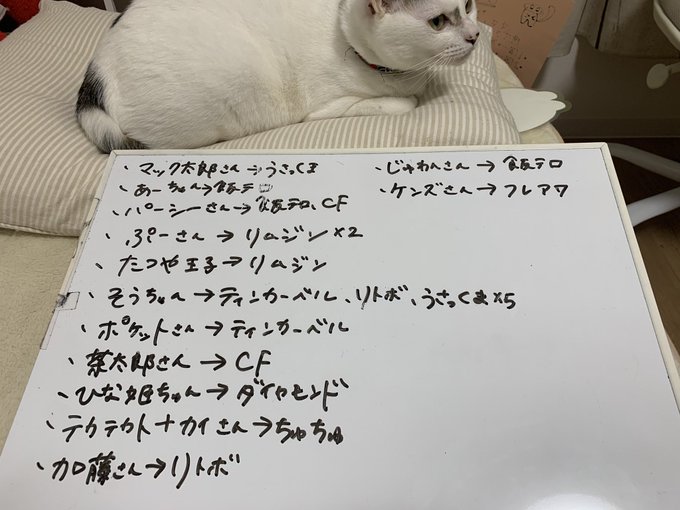 、マック太郎さん→うさっくま
、あーちゃん→飯テロ
、パーシーさん→飯テロ、CF
、ぷーさん→リムジン×2
、たつや王子→リムジン
、そうちゃん→ティンカーベル、リトボ、うさっくま×5
、ポケットさん→ティンカーベル
、茶太郎さん→CF
、ひな姫ちゃん→ダイヤモンド
、テクテカト+カイさん→ちゅちゅ
、加藤さん→リトボ
、じゅわんさん→飯テロ
、ケンズさん→フレアワ